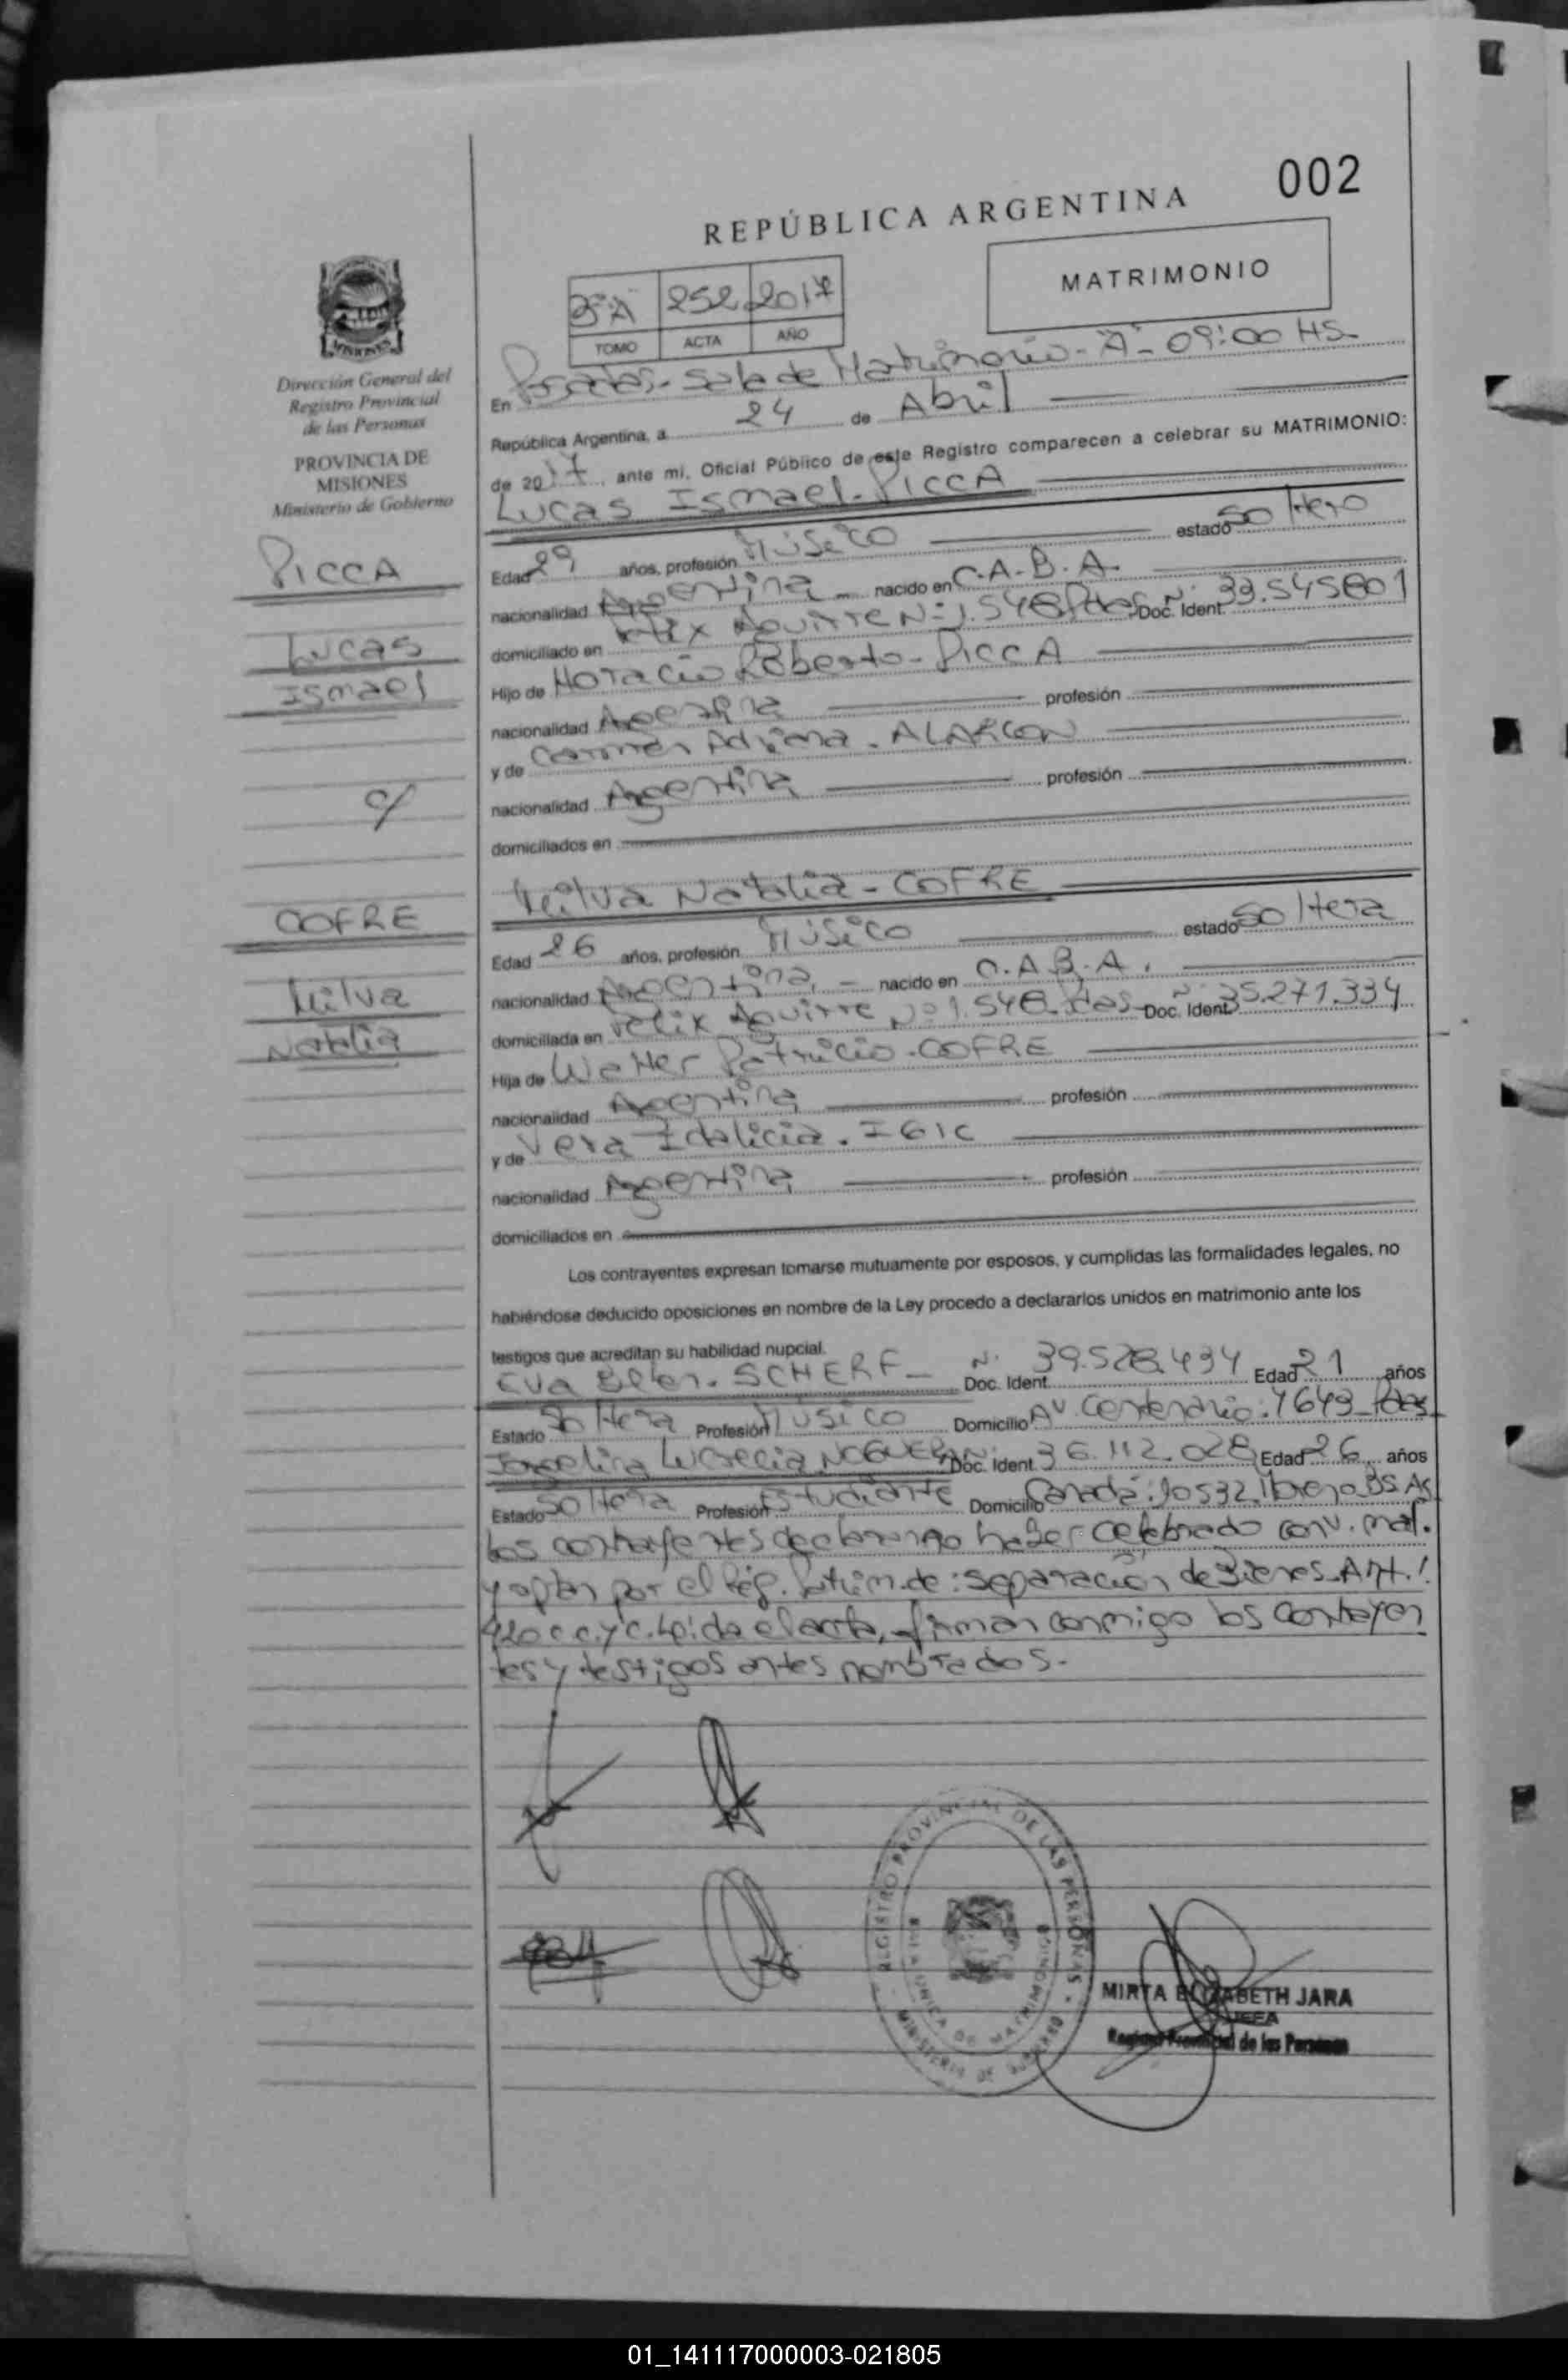 002
REPÚBLICA ARGENTINA
MATRIMONIO
3°A 252 2017
TOMO ACTA AÑO
MISIONES
Dirección General del
Registro Provincial
de las Personas
PROVINCIA DE
MISIONES
Ministerio de Gobierno
PICCA
Lucas
Ismael
c/
COFRE
Milva
Natalia
En Posadas - Sala de Matrimonio - "A" - 09:00 HS-
República Argentina, a 24 de Abril
de 2017, ante mi, Oficial Público de este Registro comparecen a celebrar su MATRIMONIO:
Lucas Ismael - PICCA
Edad 29 años, profesión Músico estado Soltero
nacionalidad Argentina - nacido en C.A.B.A.
domiciliado en Felix Aguirre N° 1.548 Pdas Doc. Ident. N° 33.545801
Hijo de Horacio Roberto - PICCA
nacionalidad Argentina profesión
y de Carmen Adriana - ALARCON
nacionalidad Argentina profesión
domiciliados en
Milva Natalia - COFRE
Edad 26 años, profesión Músico estado Soltera
nacionalidad Argentina - nacido en C.A.B.A.
domiciliada en Felix Aguirre N° 1.548 Pdas - Doc. Ident. N° 35.271.334
Hija de Walter Patricio - COFRE
nacionalidad Argentina profesión
y de Vera Idalicia - IGIC
nacionalidad Argentina profesión
domiciliados en
Los contrayentes expresan tomarse mutuamente por esposos, y cumplidas las formalidades legales, no
habiéndose deducido oposiciones en nombre de la Ley procedo a declararlos unidos en matrimonio ante los
testigos que acreditan su habilidad nupcial.
Eva Belen - SCHERF - Doc. Ident. N° 39.528.434 Edad 21 años
Estado Soltera Profesión Músico Domicilio Av. Centenario: 4649 - Pdas
Lucrecia NOGUERA Doc. Ident. 36.112.028 Edad 26 años
Estado Soltera Profesión Estudiante Domicilio Canadá: 10532. BS AS
los contrayentes declaran no haber celebrado conv. mat.
y optan por el Rég. Patrim. de: separación de Bienes - Art.
420 c.c. y c. Leída el acta, firman conmigo los contrayen
tes y testigos antes nombrados.-
REGISTRO PROVINCIAL DE LAS PERSONAS
MINISTERIO DE GOBIERNO
SALA UNICA DE MATRIMONIOS
MIRTA ELIZABETH JARA
JEFA
Registro Provincial de las Personas
01_141117000003-021805